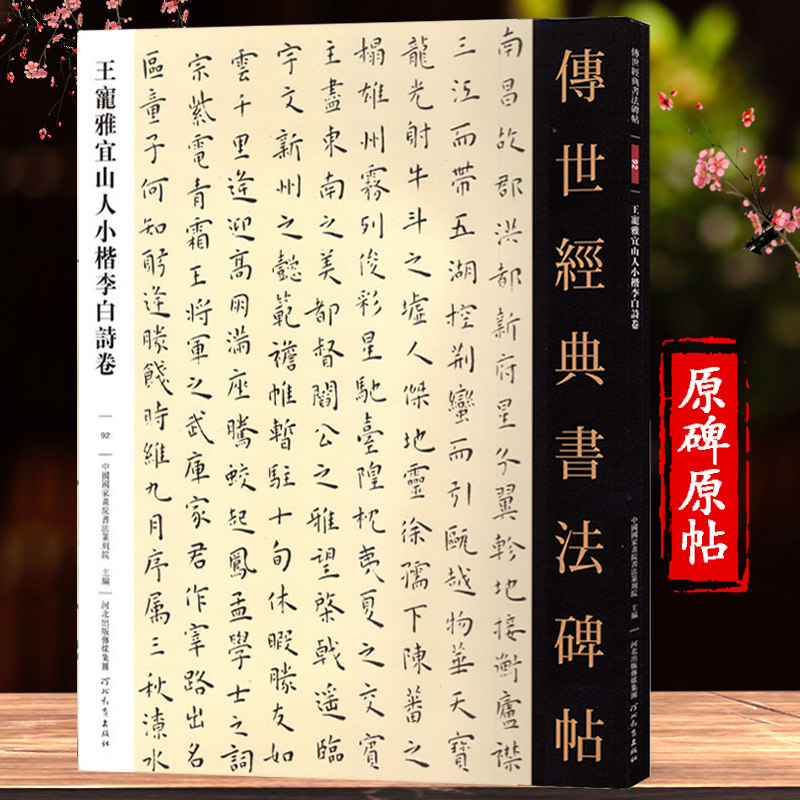 傳世經典書法碑帖
南昌故郡洪都新府星分翼軫地接衡廬襟
三江而帶五湖控荆蠻而引甌越物華天寶
龍光射牛斗之墟人傑地靈徐孺下陳蕃之
榻雄州霧列俊彩星馳臺隍枕夷夏之交賓
主盡東南之美都督閻公之雅望棨戟遥臨
宇文新州之懿範襜帷暫駐十旬休暇勝友如
雲千里逢迎高朋滿座騰蛟起鳳孟學士之詞
宗紫電青霜王將軍之武庫家君作宰路出名
區童子何知躬逢勝餞時維九月序属三秋潦水
王寵雅宜山人小楷李白詩卷
92
中國國家畫院書法篆刻院 主編
河北出版傳媒集團
河北教育出版社
傳世經典書法碑帖
92
王寵雅宜山人小楷李白詩卷
中國國家畫院書法篆刻院 主編
河北出版傳媒集團
河北教育出版社
原碑原帖